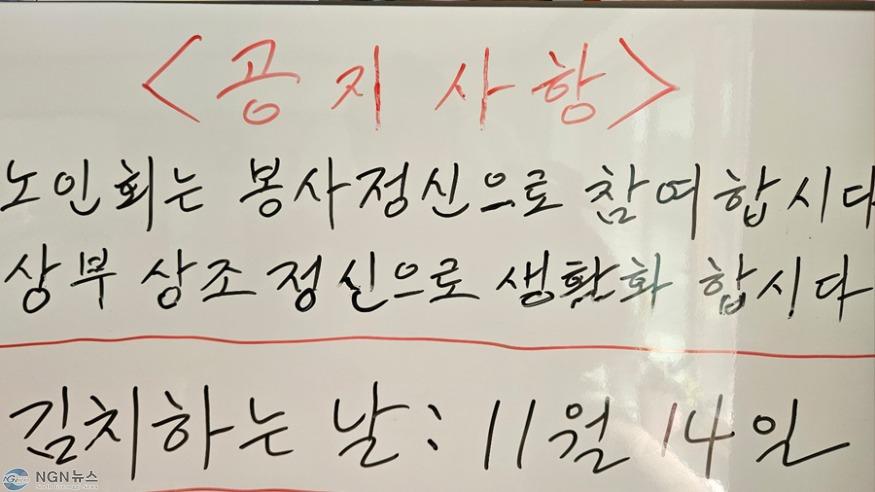 <공지사항>
노인회는 봉사정신으로 참여합시다
상부 상조정신으로 생활화 합시다
김치하는 날: 11월 14일
NGN뉴스